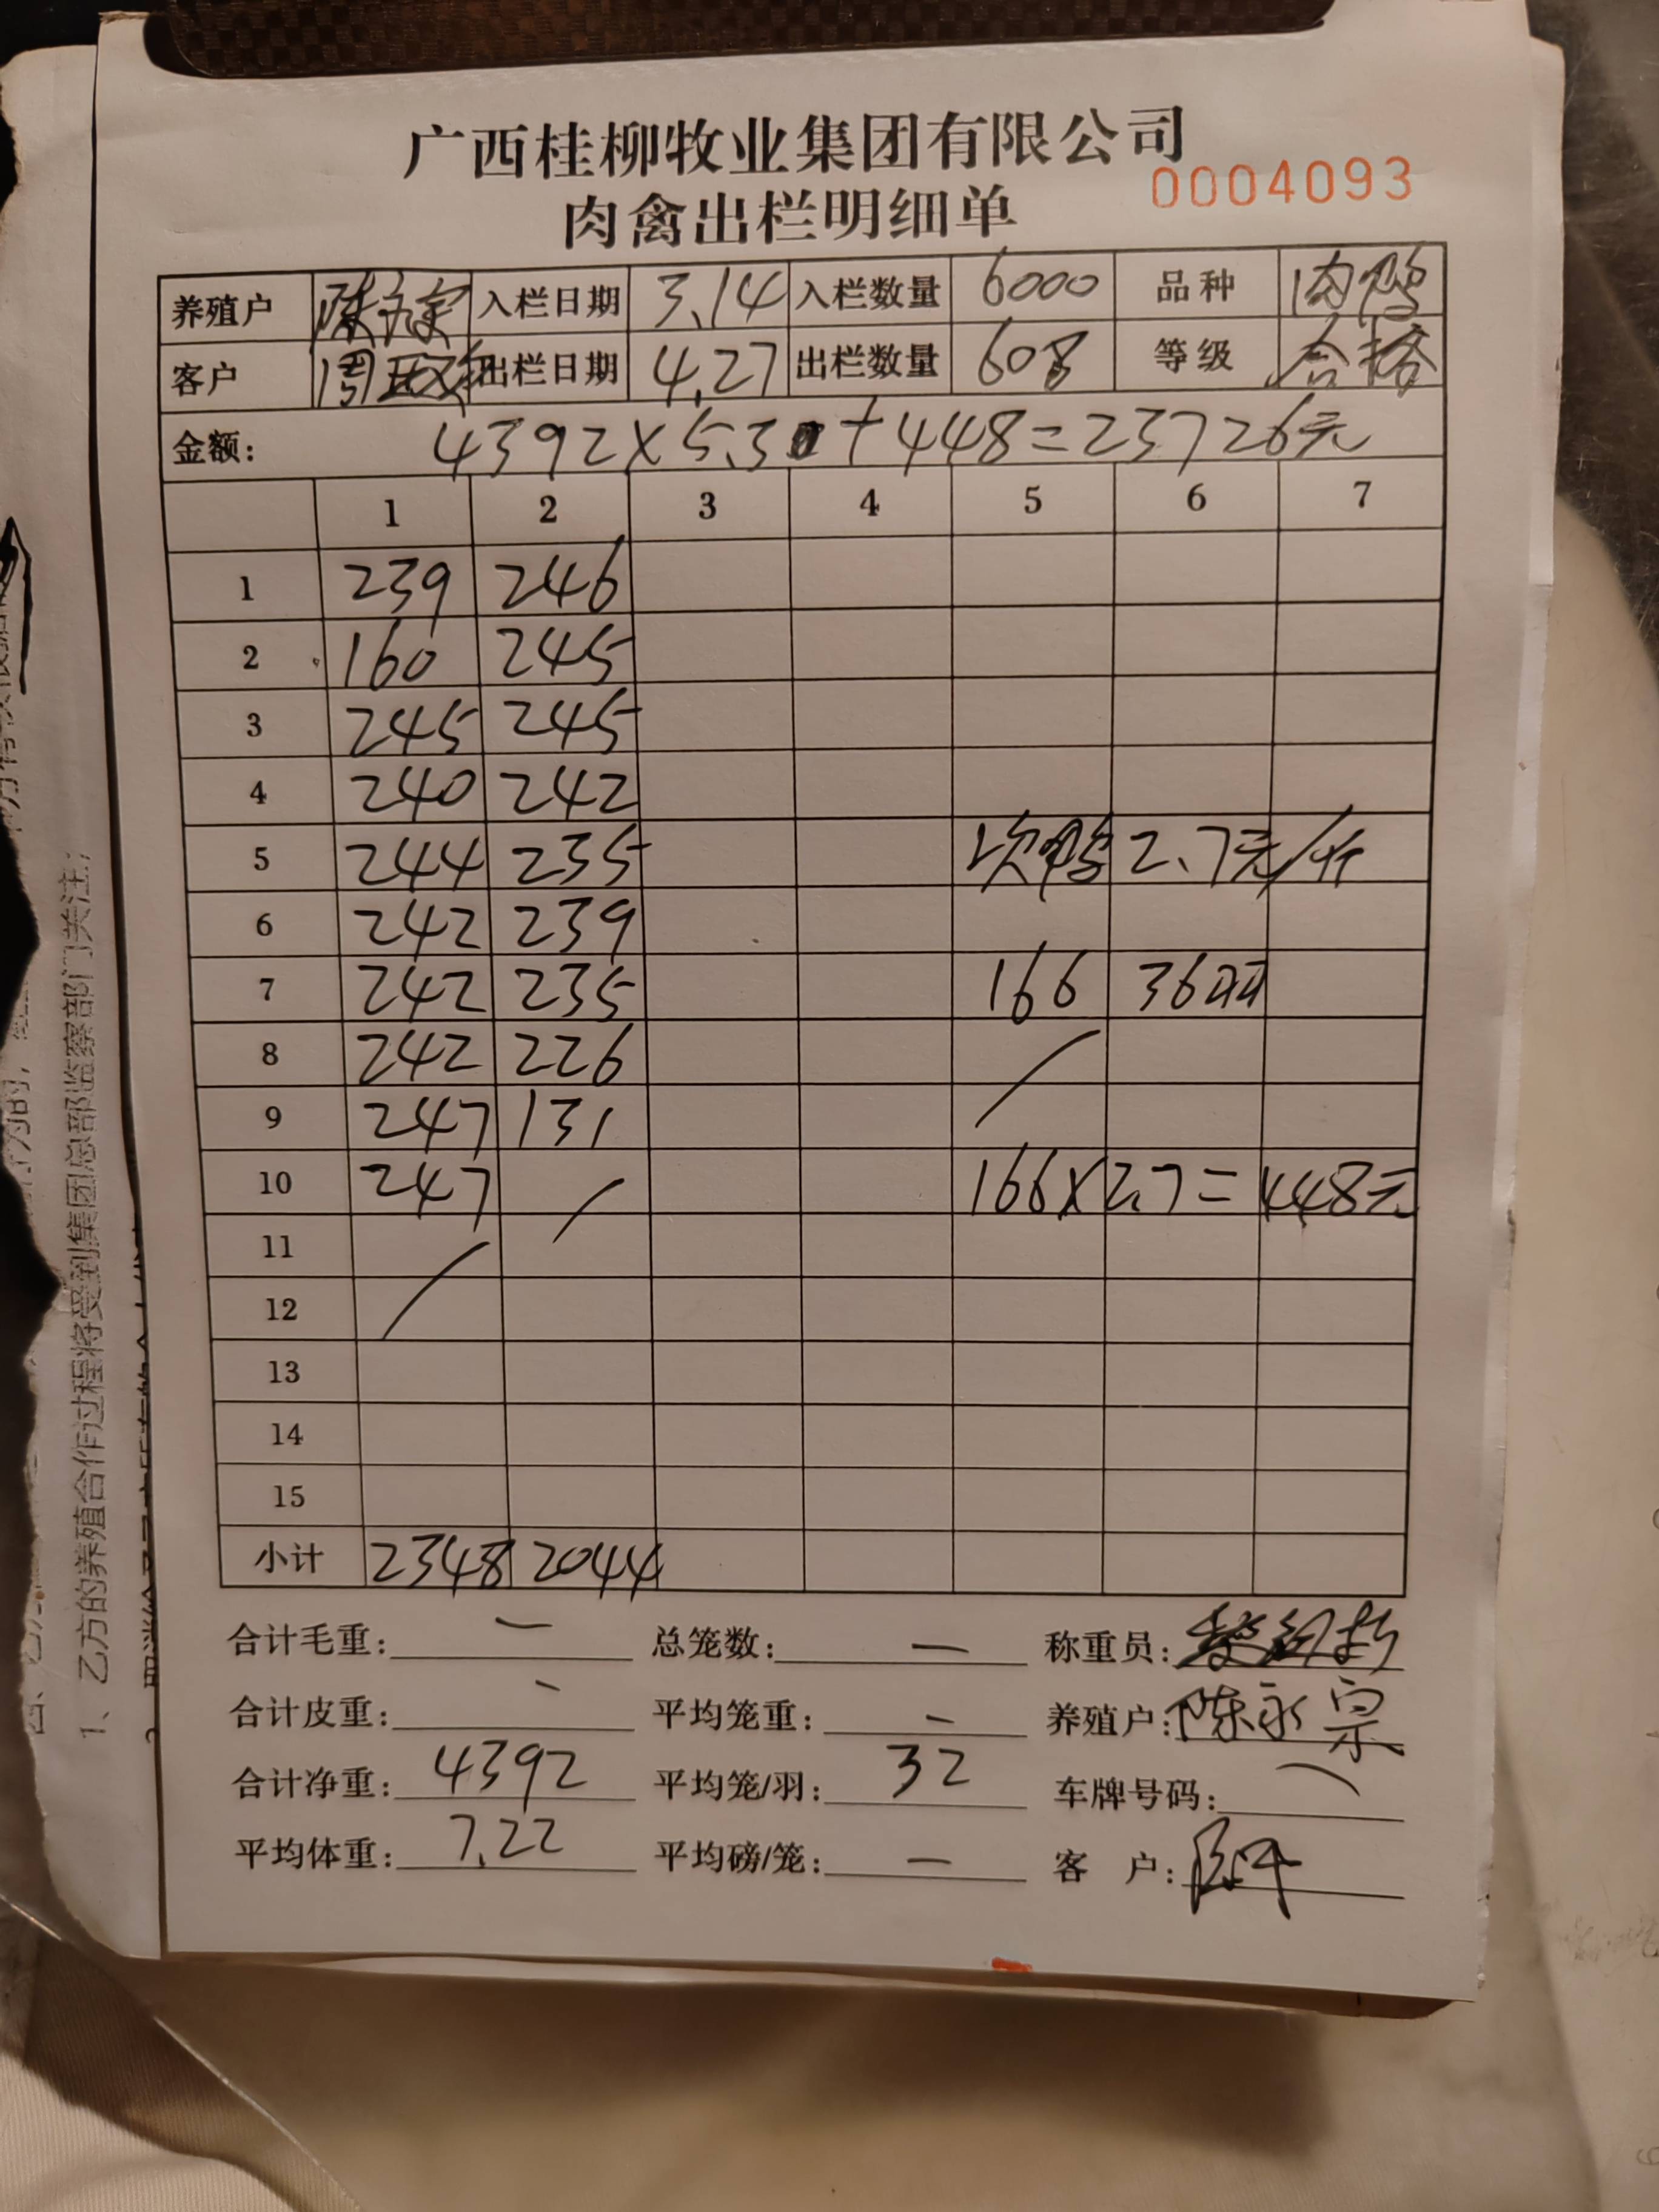 广西桂柳牧业集团有限公司
肉禽出栏明细单
0004093
养殖户 陈永宗 入栏日期 3.14 入栏数量 6000 品种 肉鸭
客户 周 出栏日期 4.27 出栏数量 608 等级 合格
金额: 4392×5.30+448=23726元
1 2 3 4 5 6 7
1 239 246
2 160 245
3 245 245
4 240 242
5 244 235 次鸭 2.7元/斤
6 242 239
7 242 235 166 36羽
8 242 226
9 247 131
10 247 166×2.7=448元
11
12
13
14
15
小计 2348 2044
合计毛重: — 总笼数: — 称重员:
合计皮重: - 平均笼重: - 养殖户: 陈永宗
合计净重: 4392 平均笼/羽: 32 车牌号码:
平均体重: 7.22 平均磅/笼: — 客 户:
1、乙方的养殖合作过程将受到集团总部监察部门关注;